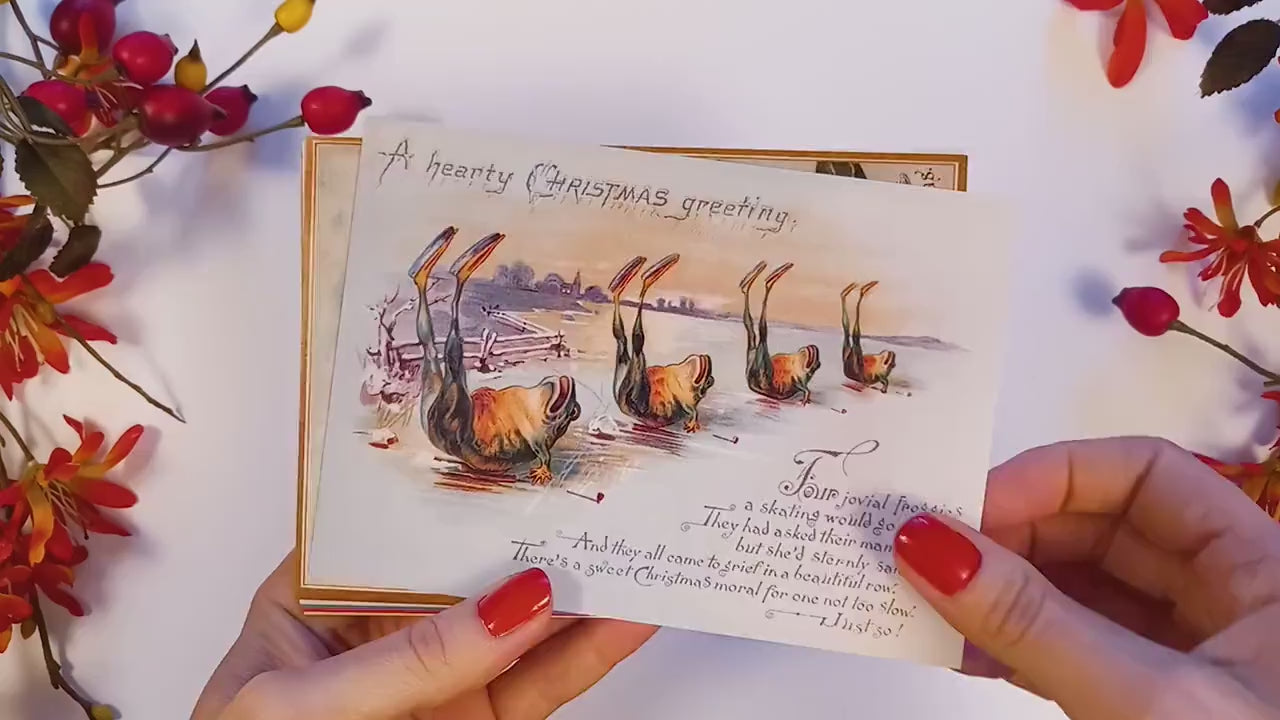 A hearty CHRISTMAS greeting.
Four jovial froggies
a skating would go
They had asked their
but she'd sternly
And they all came to grief in a beautiful row.
There's a sweet Christmas moral for one not too slow.
Just so!